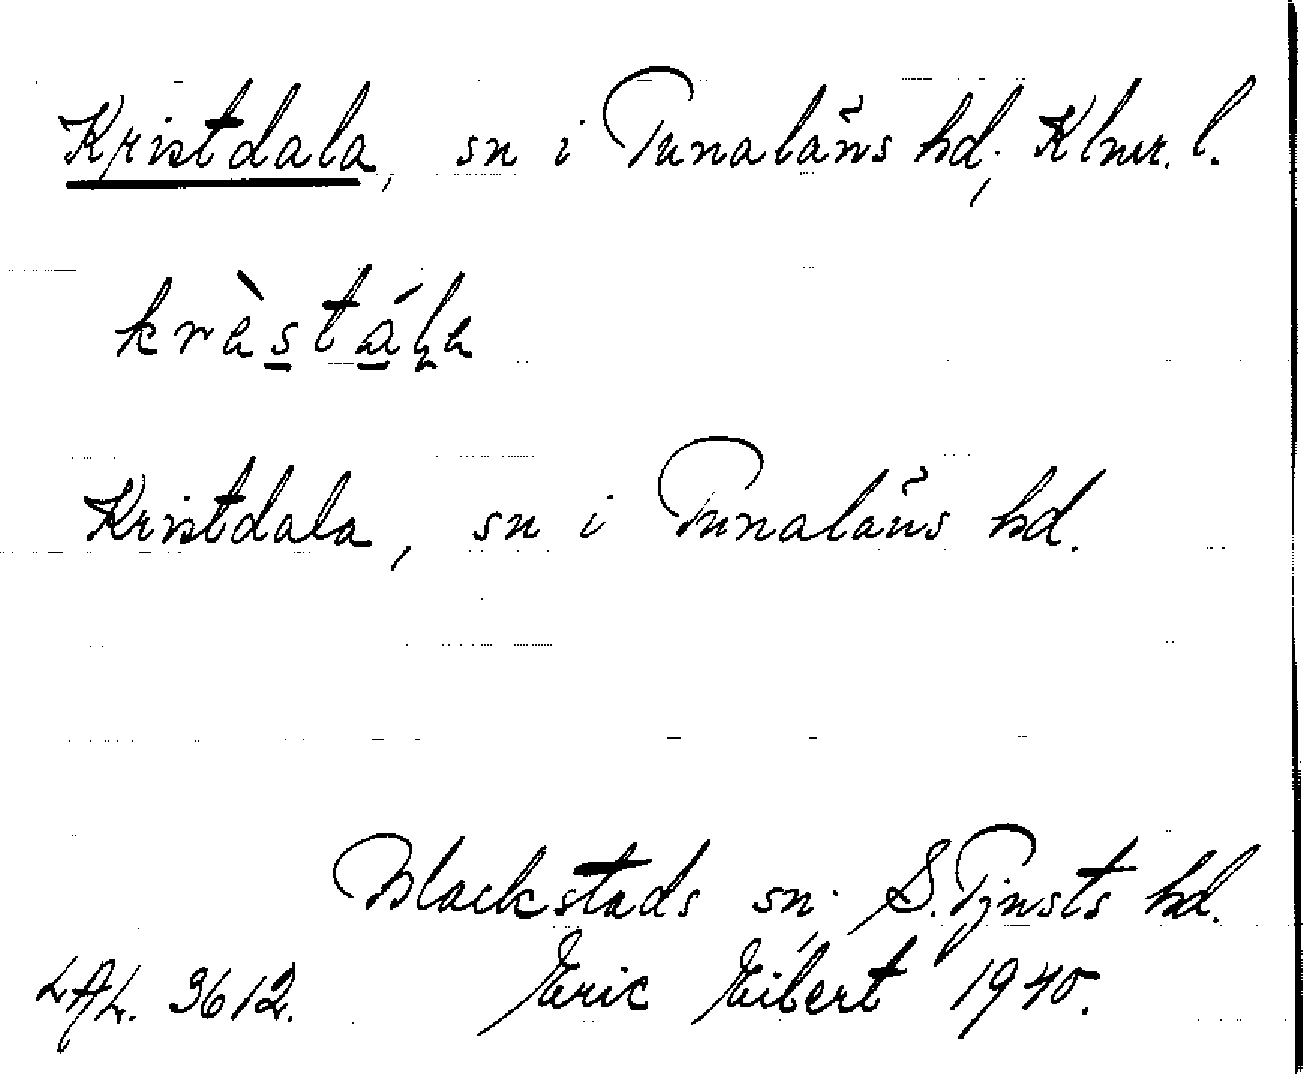 Kristdala, sn i Tunaläns hd, Klmr. l.
krèstála
Kristdala, sn i Tunaläns hd.
Blackstads sn, S. Tjusts hd.
LAL. 3612. Eric Eibert 1940.